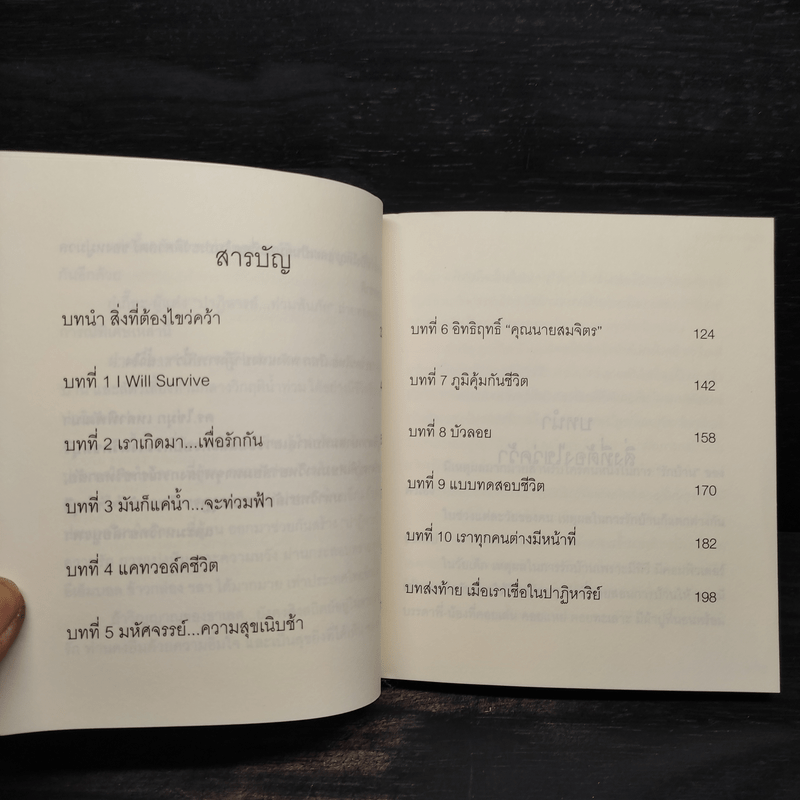 สารบัญ
บทนำ สิ่งที่ต้องไขว่คว้า
บทที่ 1 I Will Survive
บทที่ 2 เราเกิดมา...เพื่อรักกัน
บทที่ 3 มันก็แค่น้ำ...จะท่วมฟ้า
บทที่ 4 แคทวอล์คชีวิต
บทที่ 5 มหัศจรรย์...ความสุขเนิบช้า
บทที่ 6 อิทธิฤทธิ์ "คุณนายสมจิตร" 124
บทที่ 7 ภูมิคุ้มกันชีวิต 142
บทที่ 8 บัวลอย 158
บทที่ 9 แบบทดสอบชีวิต 170
บทที่ 10 เราทุกคนต่างมีหน้าที่ 182
บทส่งท้าย เมื่อเราเชื่อในปาฏิหาริย์ 198